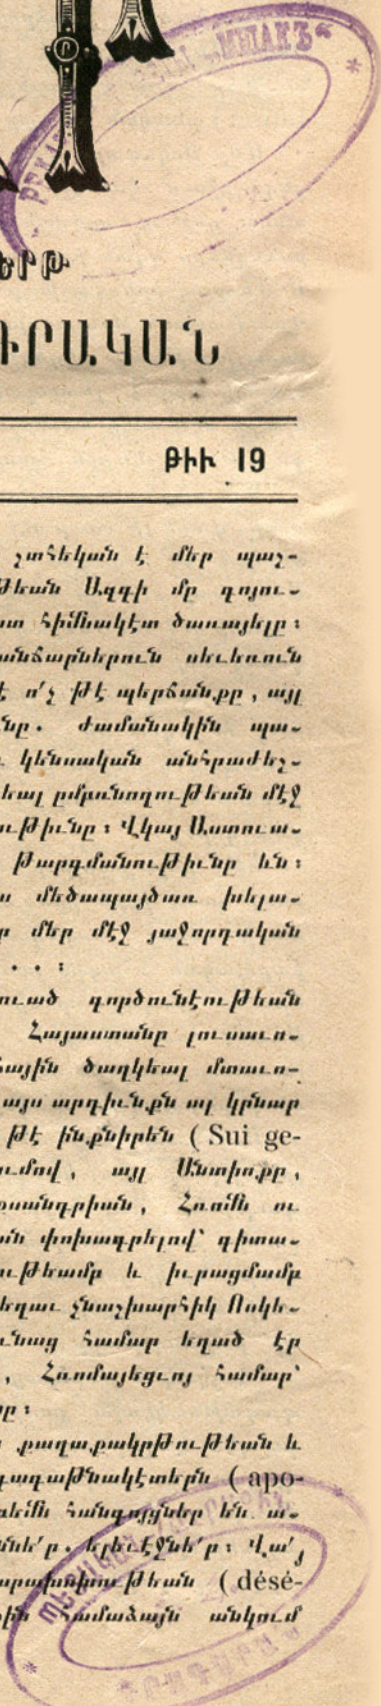 „ՄՇԱԿՅ“
ԵՐԹ
ԴՐԱԿԱՆ
ԹԻՒ 19
շահեկան է մեր պաշ-
թեան Ազգի մը գոյու-
հիմնակէտ ծառայելը։
անճարներուն
է ո՛չ թէ պերճանքը, այլ
նը. ժամանակին պա-
կենսական անհրաժեշ-
եալ ըմբռնողութեան մէջ
ութիւնը։ Վկայ Աստուա-
թարգմանութիւնը են։
մեծապայծառ խելա-
մեր մէջ յաջորդական
. . :
ուած գործունէութեան
Հայաստանը լուսաւո-
ային ծաղկեալ մտաւո-
այս արդիւնքն ալ կրնար
թէ ինքնիրեն ( Sui ge-
ւմով, այլ Անտիոքը,
քսանդրիան, Հռոմն ու
ն փոխադրելով՝ գիտա-
ութեամբ և իւրացմամբ
եղաւ չնաշխարհիկ Ոսկե-
ւնաց համար եղած էր
, Հռոմայեցւոյ համար՝
ը։
քաղաքակրթութեան և
գագաթնակէտերն ( apo-
հանգոյցներ են. ա-
նե՛ր. երեւէջնե՛ր։ Վա՛յ
թեան ( désé-
ին համաձայն անկում